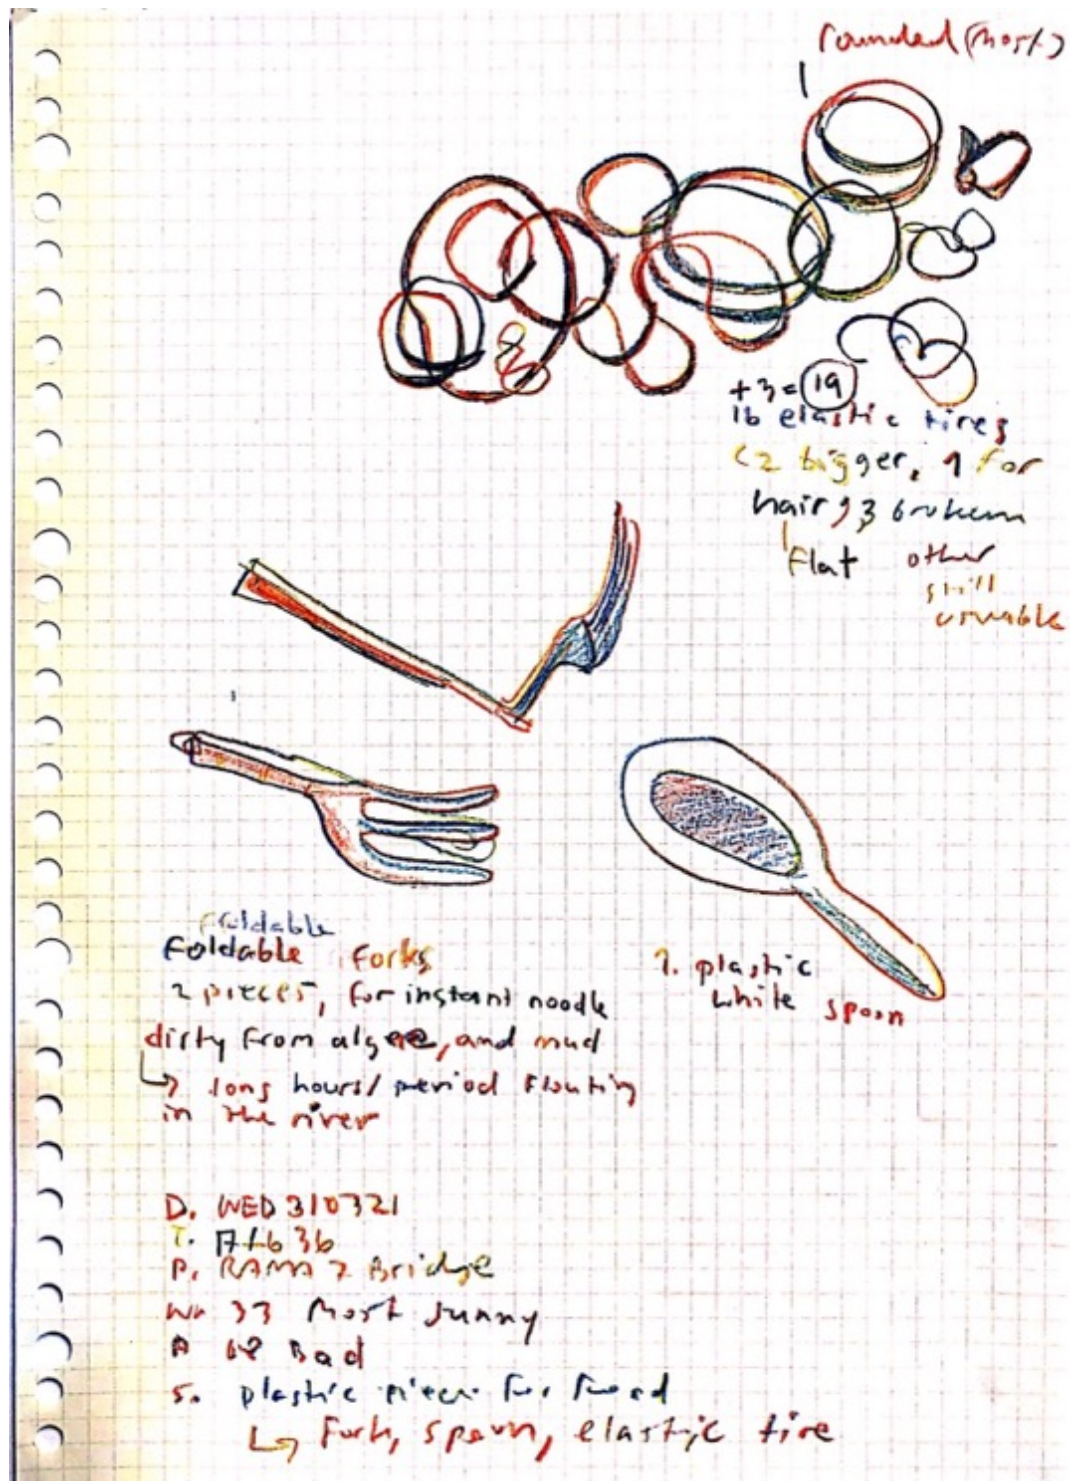 rounded (most)
+3=19
16 elastic tires
(2 bigger, 1 for
hair, 3 broken
flat other
still
usuable
foldable
Foldable Forks
2 pieces, for instant noodle
dirty from algae, and mud
↳ long hours/period floating
in the river
1. plastic
white spoon
D. WED 310321
T.
P. RAMA 7 Bridge
33 Most sunny
Bad
S. plastic piece for food
↳ Fork, spoon, elastic tire